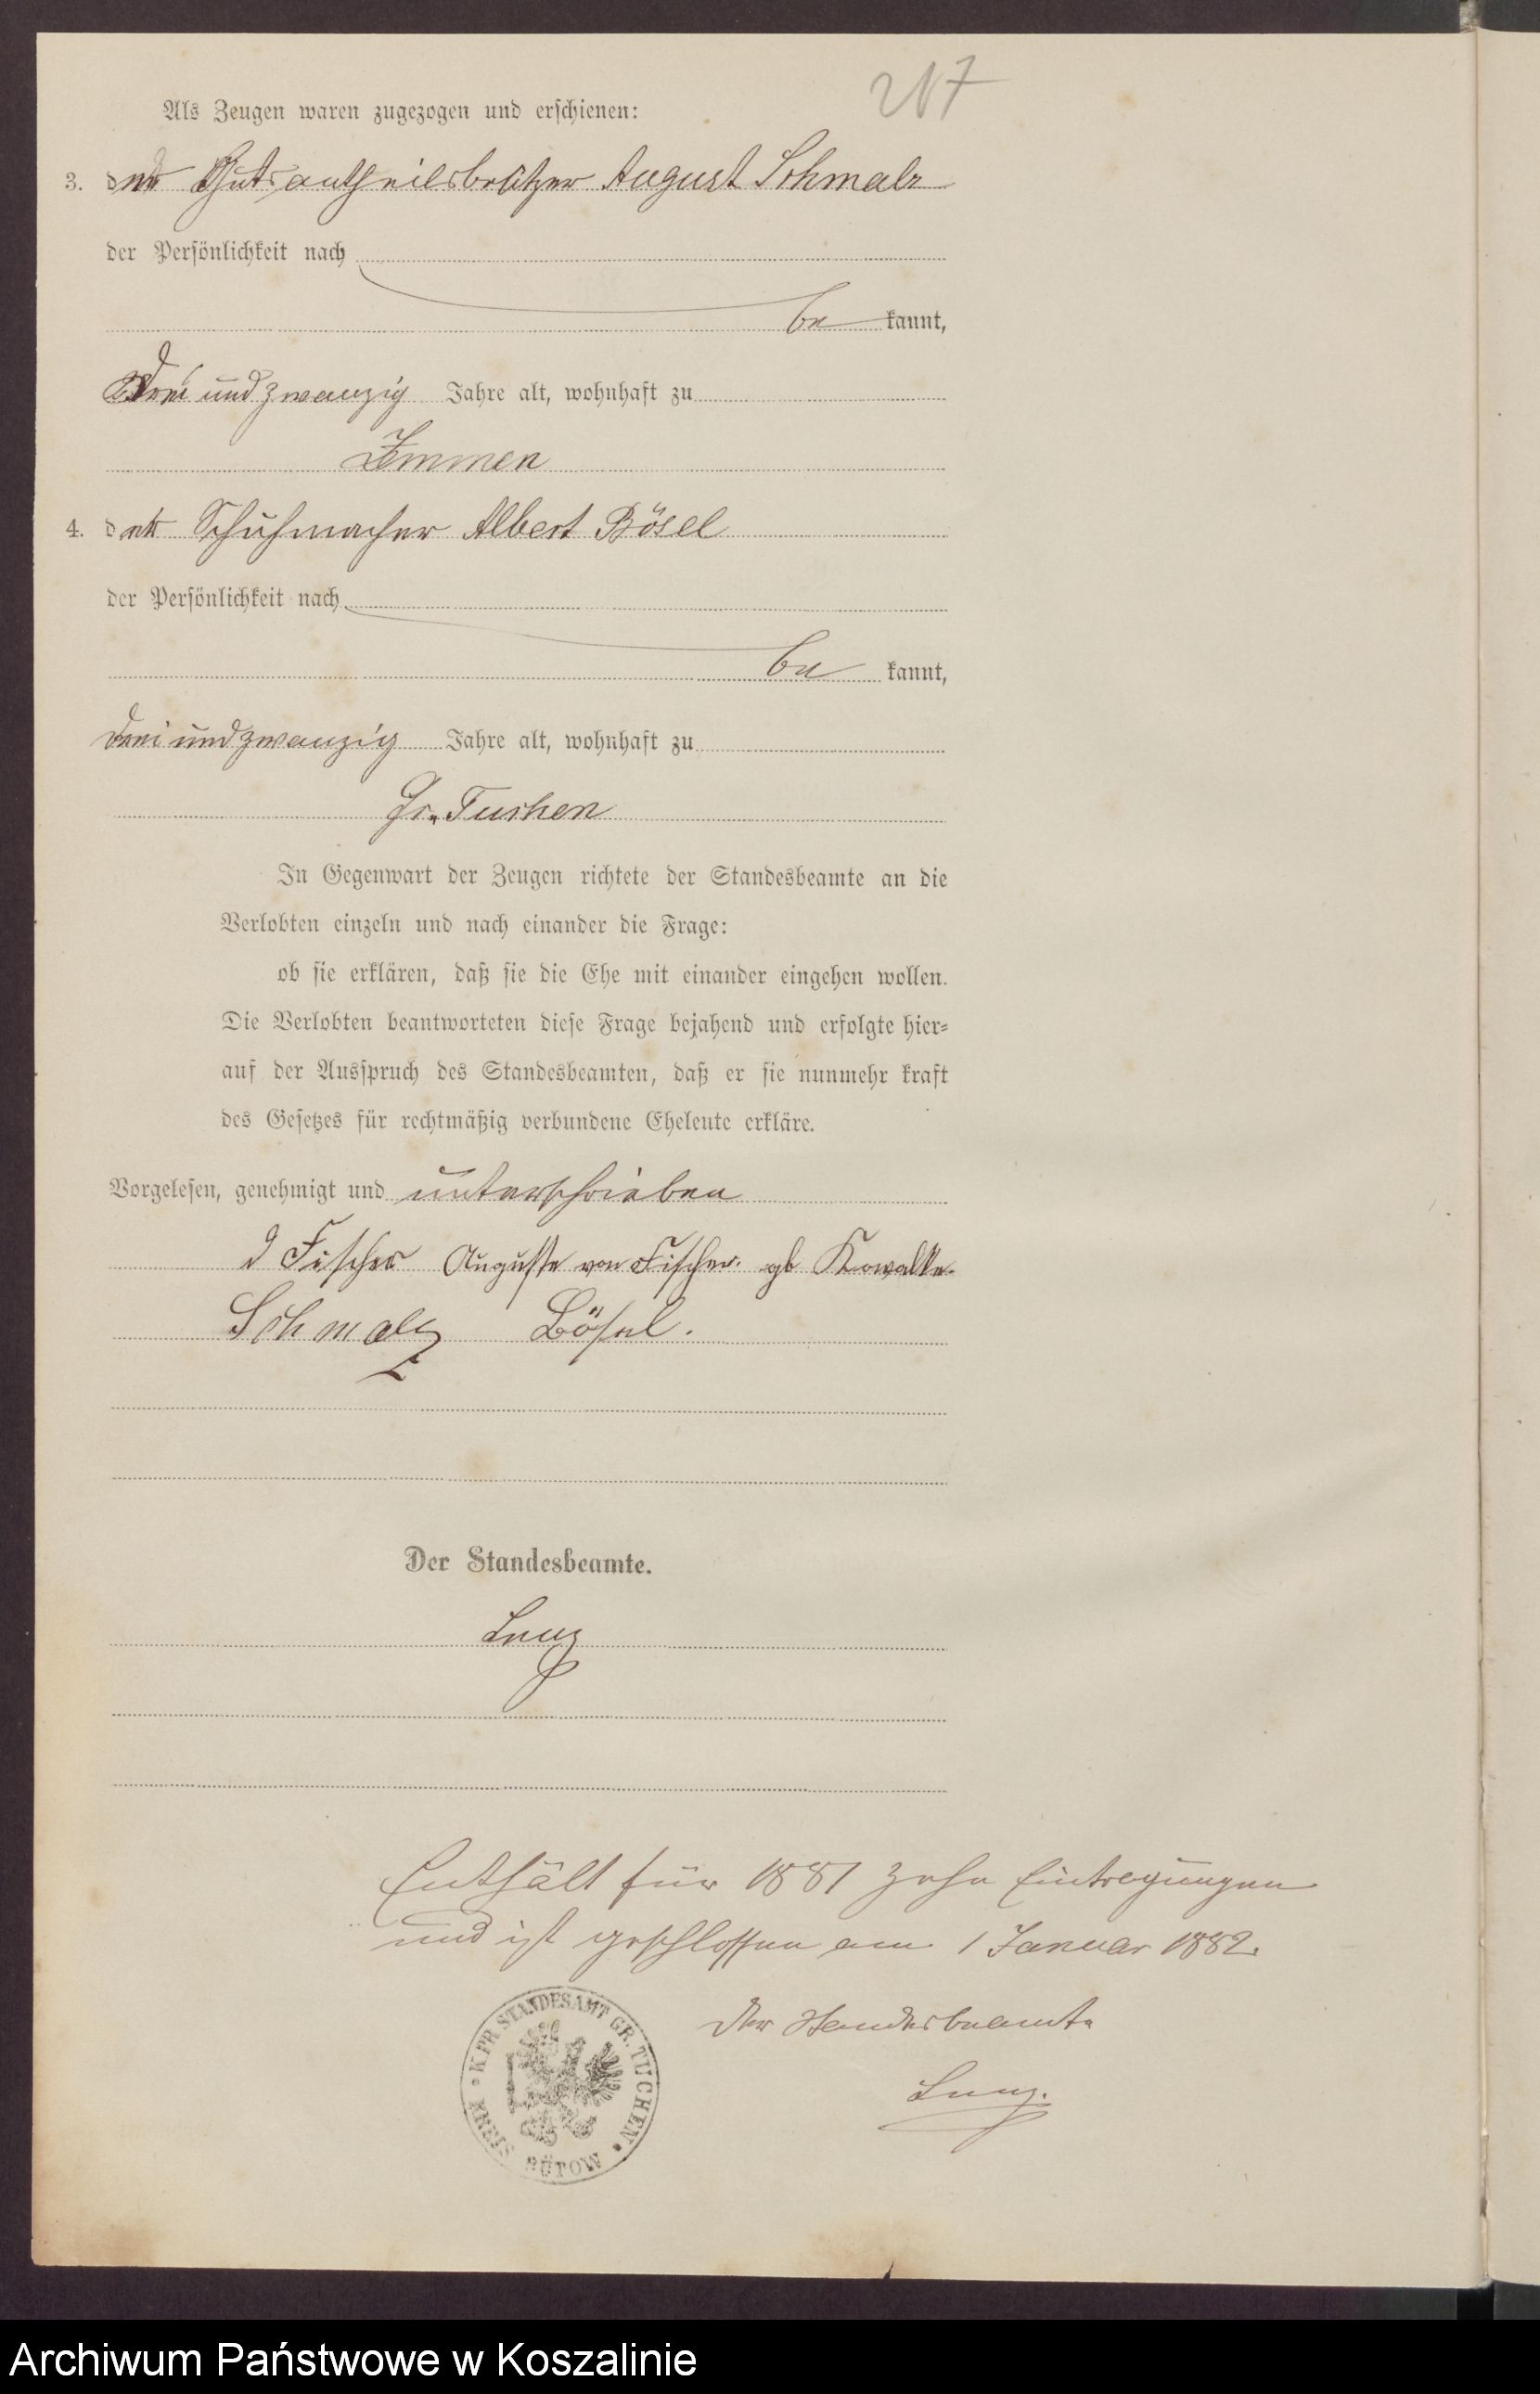 217
Als Zeugen waren zugezogen und erschienen:
3. der Gutsantheilsbesitzer August Schmalz
der Persönlichkeit nach
be kannt,
drei und zwanzig Jahre alt, wohnhaft zu
Zemmen
4. der Schuhmacher Albert Bösel
der Persönlichkeit nach
be kannt,
drei und zwanzig Jahre alt, wohnhaft zu
Gr. Tuchen
In Gegenwart der Zeugen richtete der Standesbeamte an die
Verlobten einzeln und nach einander die Frage:
ob sie erklären, daß sie die Ehe mit einander eingehen wollen.
Die Verlobten beantworteten diese Frage bejahend und erfolgte hier-
auf der Ausspruch des Standesbeamten, daß er sie nunmehr kraft
des Gesetzes für rechtmäßig verbundene Eheleute erkläre.
Vorgelesen, genehmigt und unterschrieben
Fischer Auguste von Fischer gb Kowalke
Schmalz Bösel.
Der Standesbeamte.
Enthält für 1881 zehn Eintragungen
und ist geschlossen am 1 Januar 1882.
Der Standesbeamte
K. PR. STANDESAMT GR. TUCHEN
KREIS BÜTOW
Archiwum Państwowe w Koszalinie